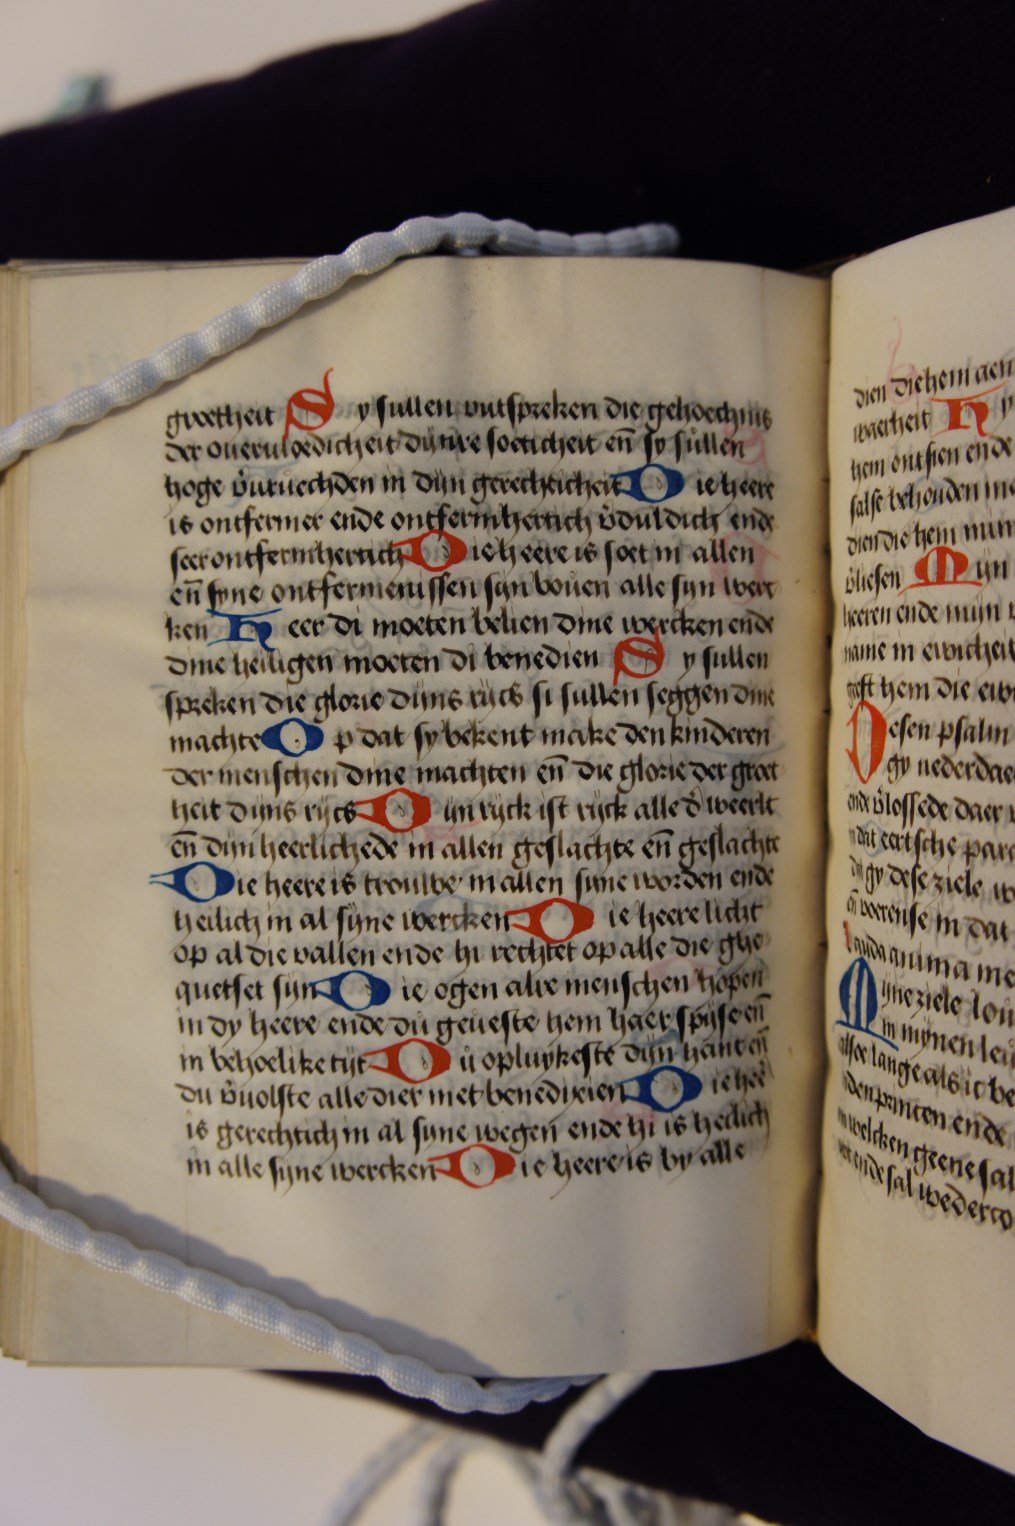 grootheit Sy sullen vutspreken die gehoechnis
der oueruloedicheit dijnre soeticheit en̄ sy sullen
hoge v̾uruechden in dijn gerechticheit Die heere
is ontfermer ende ontfermhertich v̾duldich ende
seer ontfermhertich Die heere is soet in allen
en̄ syne ontfermenissen sijn bouen alle sijn werc
ken Heer di moeten belien dine wercken ende
dine heiligen moeten di benedien Sy sullen
spreken die glorie dijns rijcs si sullen seggen dine
machte Op dat sy bekent make den kinderen
der menschen dine machten en̄ die glorie der groet
heit dijns rijcs Dijn rijck ist rijck alle d̾ weerlt
en̄ dijn heerlichede in allen geslachte en̄ geslachte
Die heere is trouwe in allen sijne worden ende
heilich in al sijne wercken Die heere licht
op al die vallen ende hi rechtet op alle die ghe
quetset sijn Die ogen alre menschen hopen
in dy heere ende du geueste hem haer spijse en̄
in behoelike tijt Du opluykeste dijn hant en̄
du v̾uolste alle dier met benedixien Die hee̾
is gerechtich in al sijne wegen ende hi is heilich
in alle sijne wercken Die heere is by alle
dien die hem aen
waerheit Hy
hem ontsien ende
salse behouden
dien die hem min
v̾liesen Mijn
heeren ende mijn
name in ewicheit
geeft hem die ewi
Desen psalm
gy nederdae
ende v̾lossede daer
in dat eertsche para
dat gy dese ziele
en̄ voerense in dat
Lauda anima me
Mijne ziele lou
in mijnen leu
alsoe lange als ic be
den princen ende
in welcken geene sal
ende sal wederco